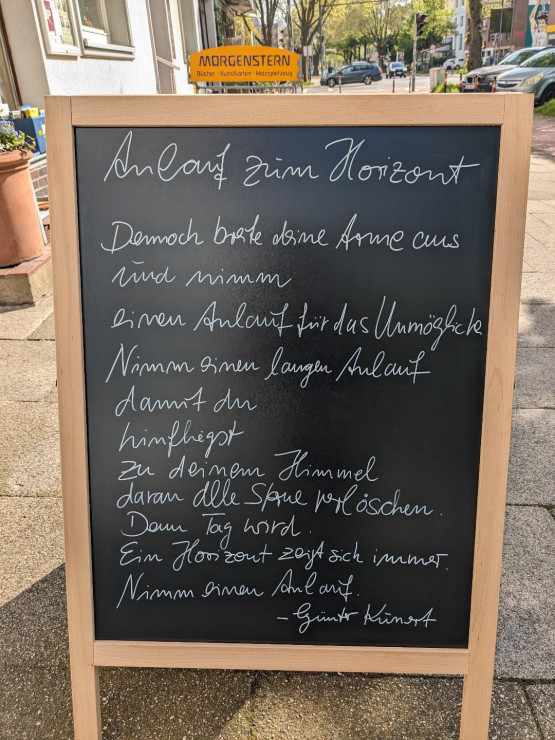 MORGENSTERN
Bücher · Kunstkarten · Holzspielzeug
Anlauf zum Horizont
Dennoch breite deine Arme aus
und nimm
einen Anlauf für das Unmögliche
Nimm einen langen Anlauf
damit du
hinfliegst
zu deinem Himmel
daran alle Sterne verlöschen.
Denn Tag wird.
Ein Horizont zeigt sich immer.
Nimm einen Anlauf.
- Günter Kunert